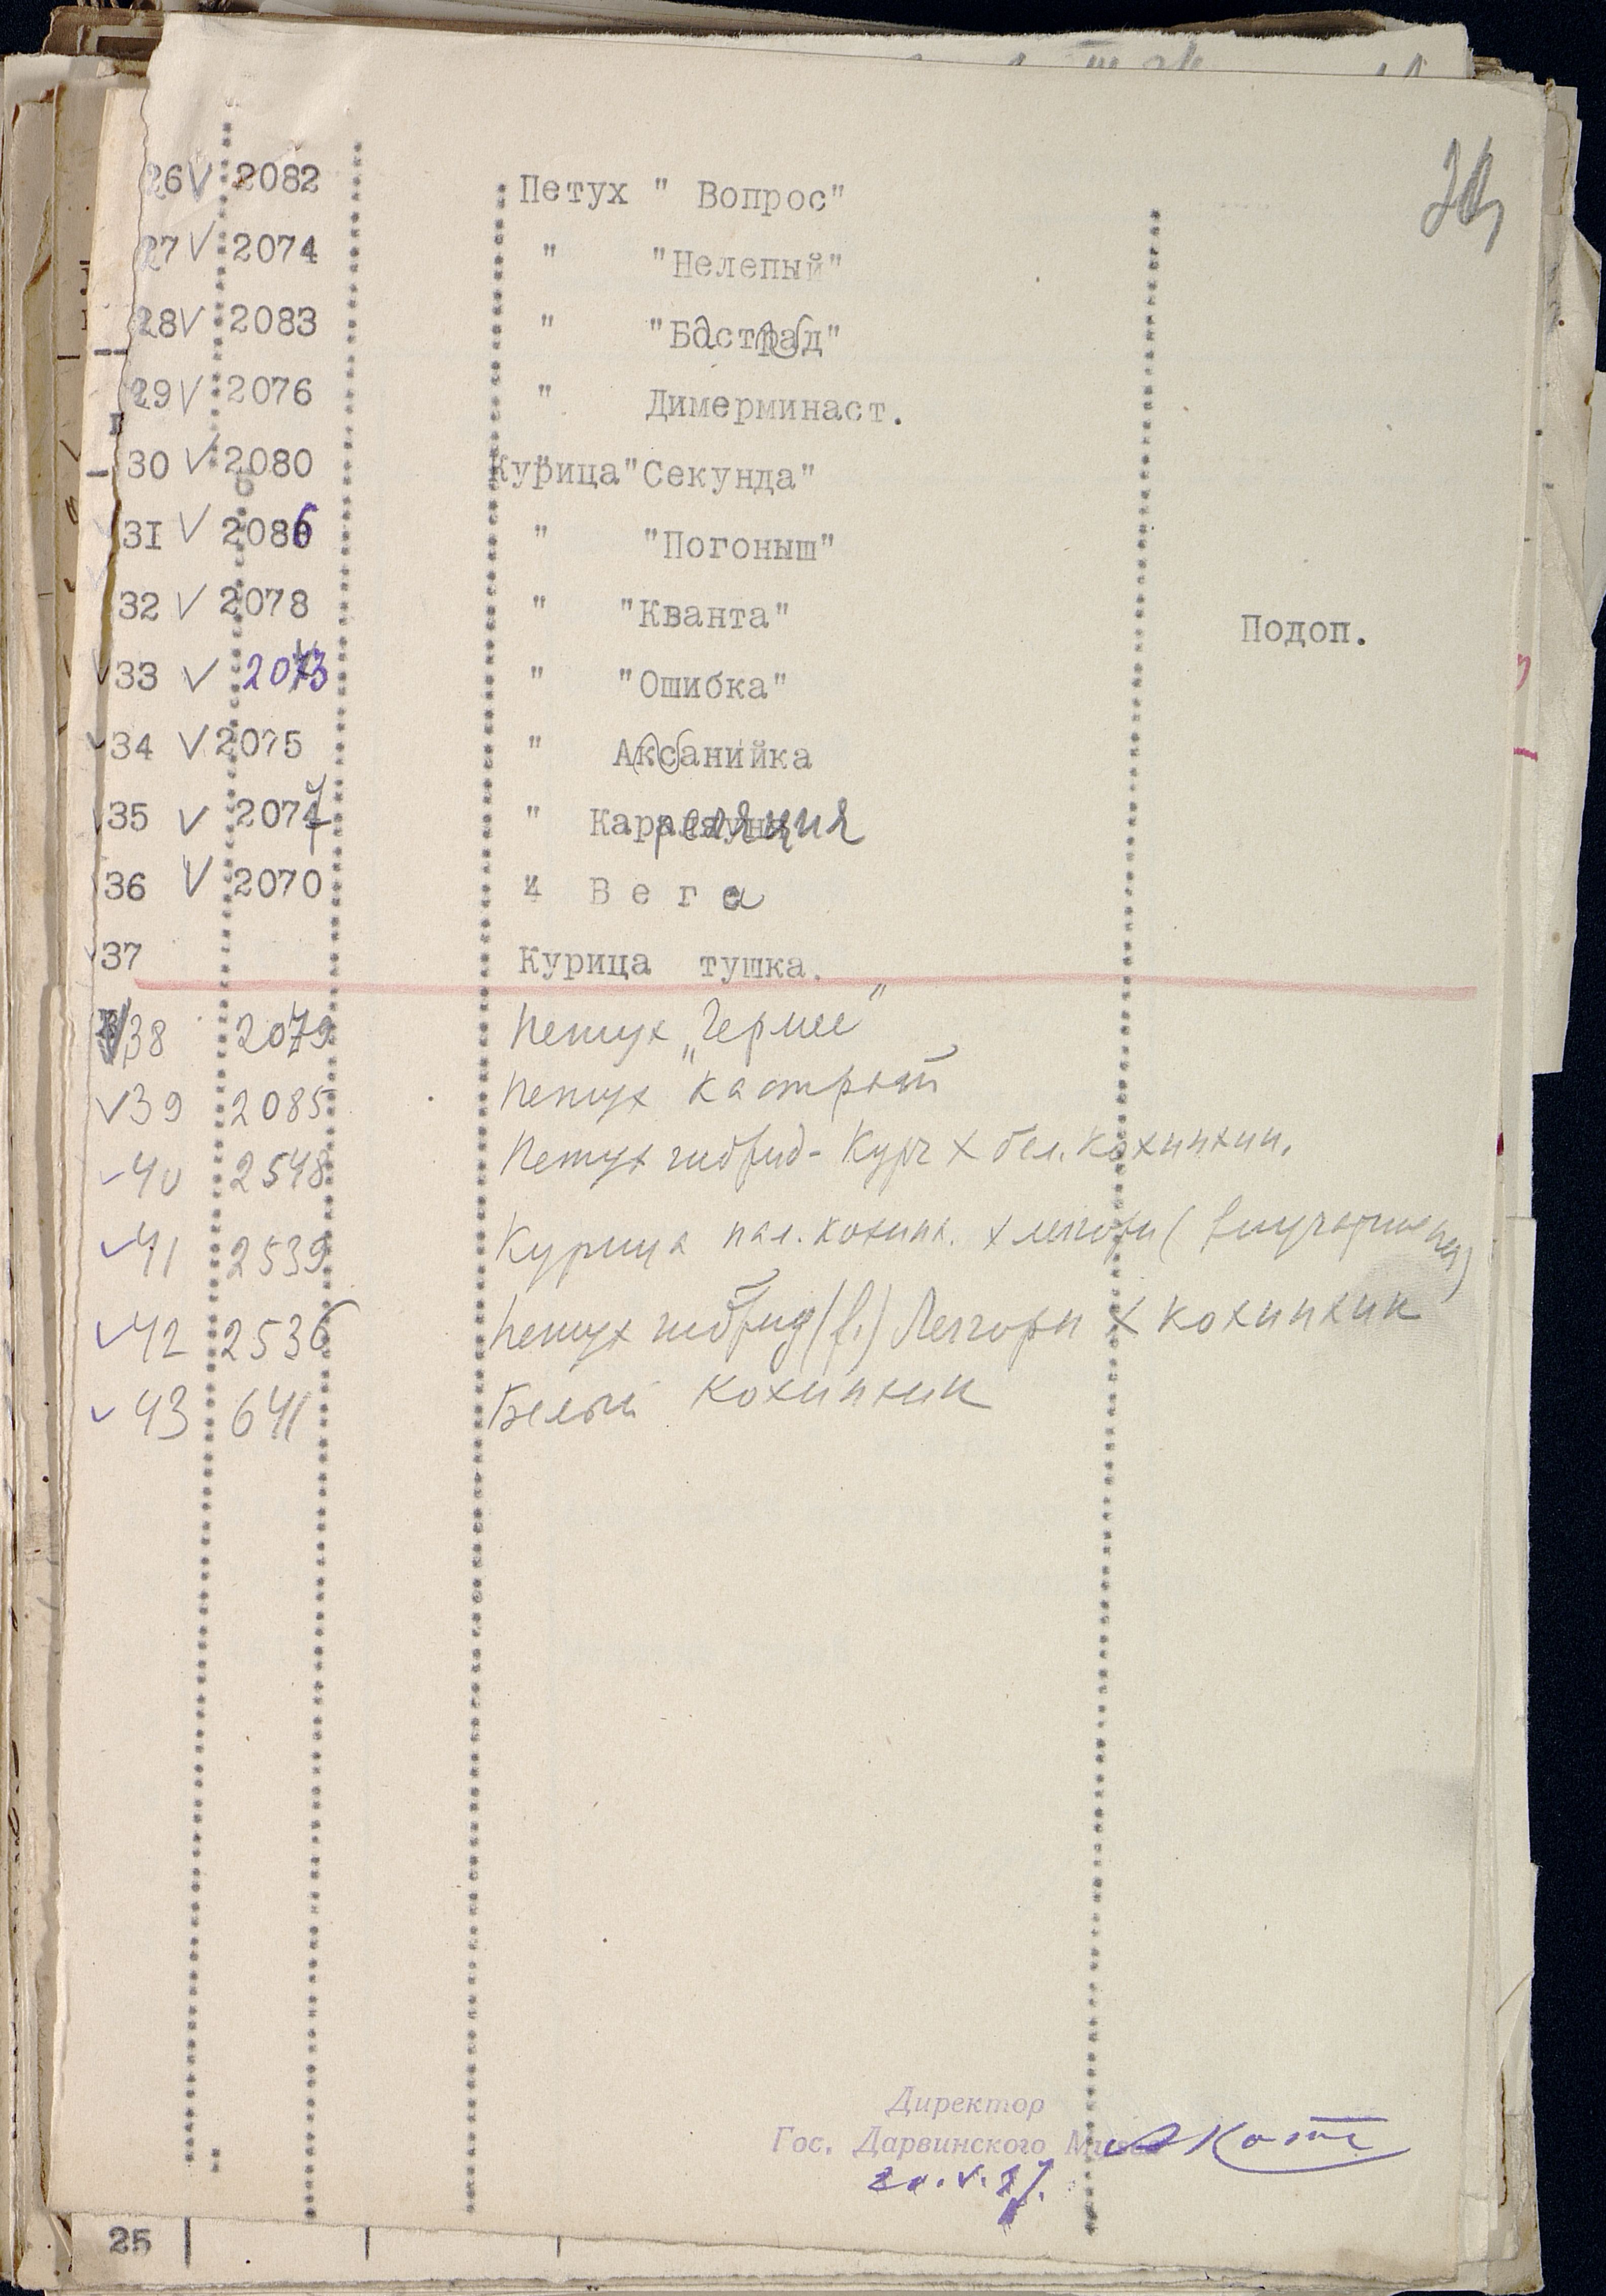 26 V 2082 Петух " Вопрос"
27 V 2074 " "Нелепый"
28 V 2083 " "Бастард"
29 V 2076 " Димерминаст.
30 V 2080 Курица "Секунда"
31 V 2086 " "Погоныш"
32 V 2078 " "Кванта" Подоп.
33 V 2073 " "Ошибка"
34 V 2075 " Асканийка
35 V 2077 " Кареляция
36 V 2070 " Вега
37 Курица тушка.
38 2079 Петух „Гермес"
39 2085 Петух кастрат
40 2548 Петух гибрид - Курч х бел. кохинхин.
41 2539 Курица пал. кохинх. х леггорн
42 2536 Петух гибрид (f1) Леггорн х кохинхин
43 641 Белый кохинхин
Директор
Гос. Дарвинского Музея АКотс
20.V.37.
25